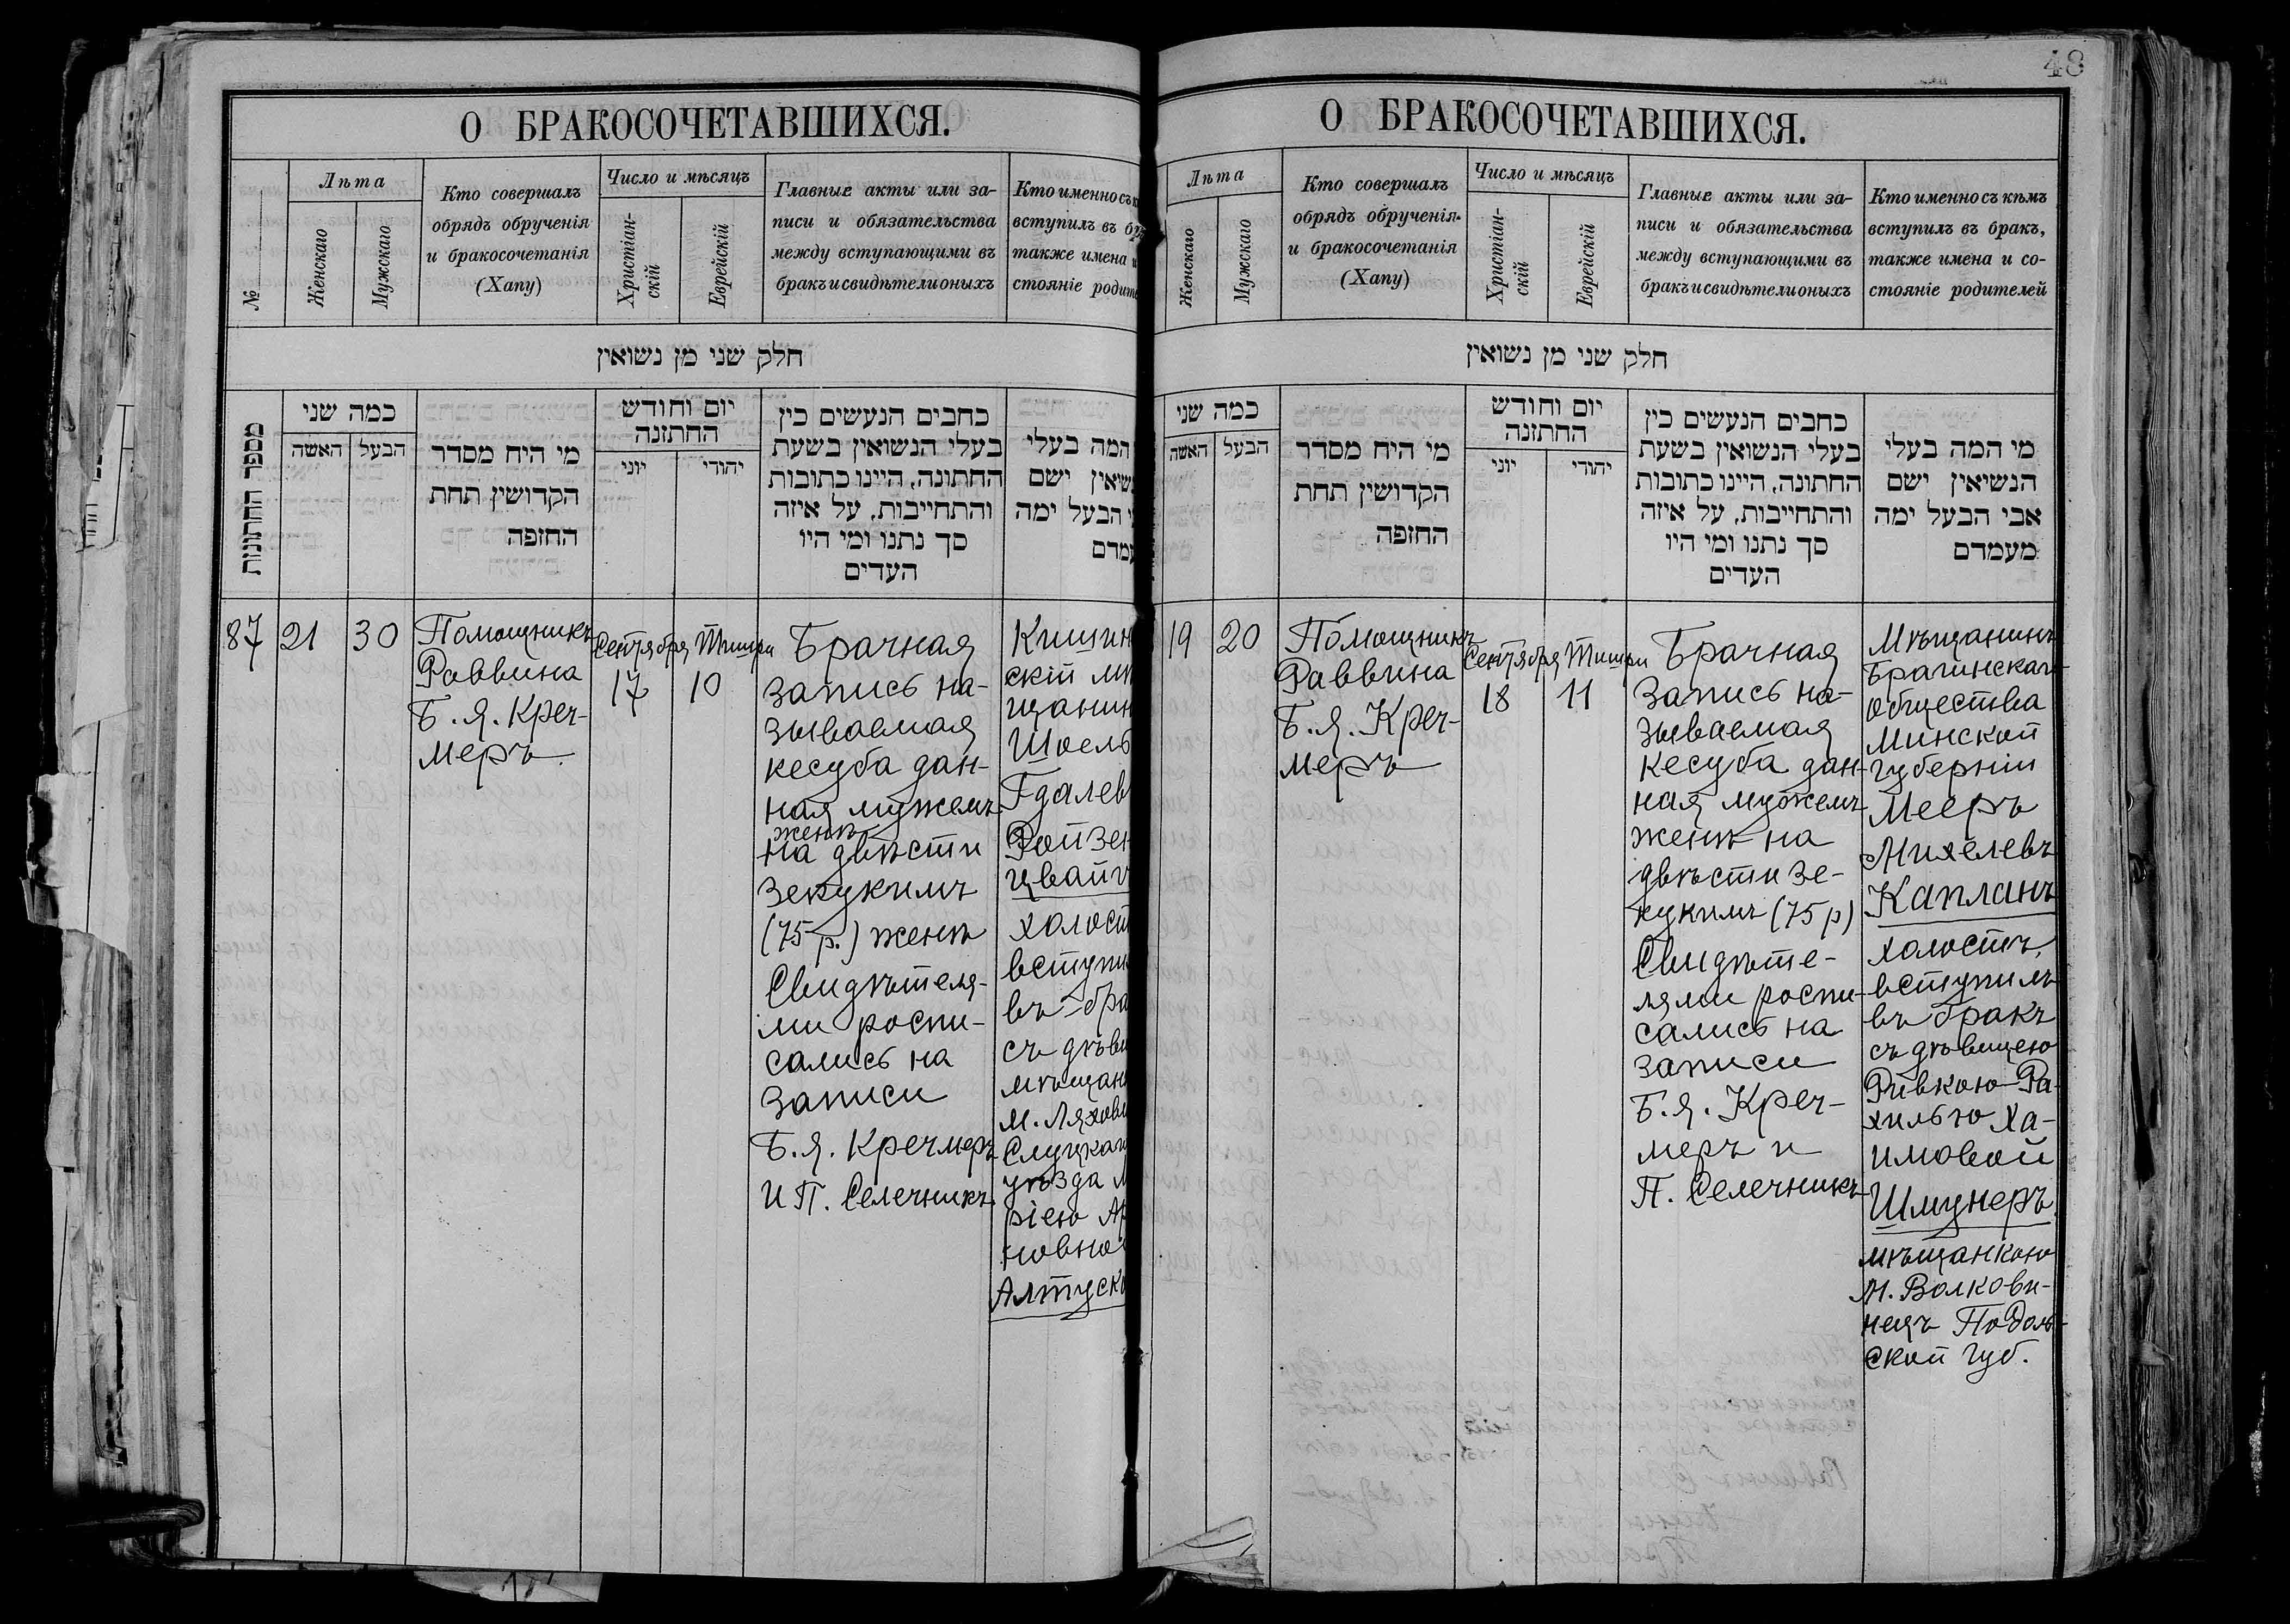 48
О БРАКОСОЧЕТАВШИХСЯ.
№
Лѣта
Женскаго
Мужскаго
Кто совершалъ
обрядъ обрученія
и бракосочетанія
(Хапу)
Число и мѣсяцъ
Христіан-
скій
Еврейскій
Главные акты или за-
писи и обязательства
между вступающими въ
бракъ и свидѣтели оныхъ
Кто именно съ к
вступилъ въ бра
также имена и
стояніе родите
חלק שני מן נשואין
מספר החתונות
כמה שני
האשה
הבעל
מי היח מסדר
הקדושין תחת
החזפה
יום וחודש
החתזנה
יוני
יהודי
כחבים הנעשים כין
בעלי הנשואין בשעת
החתונה, היינו כתובות
והתחייבות, על איזה
סך נתנו ומי היו
העדים
המה בעלי
שיאין ישם
י הבעל ימה
עמדם
87
21
30
Помощникъ
Раввина
Б. Я. Креч-
меръ.
Сентября
17
Тишри
10
Брачная
запись на-
зываемая
кесуба дан-
ная мужемъ
женѣ
на двѣсти
зекукимъ
(75 р.) женѣ
Свидѣтеля-
ми роспи-
сались на
записи
Б. Я. Кречмеръ
и П. Селечникъ
Кишин
скій мѣ
щанин
Шоель
Гдалев
Ройзен
цвайгъ
холост
вступи
въ бра
съ дѣви
мѣщан
м. Ляхови
Слуцкаг
уѣзда М
ріею Ар
новно
Алтуско
О БРАКОСОЧЕТАВШИХСЯ.
Лѣта
Женскаго
Мужскаго
Кто совершалъ
обрядъ обрученія
и бракосочетанія
(Хапу)
Число и мѣсяцъ
Христіан-
скій
Еврейскій
Главные акты или за-
писи и обязательства
между вступающими въ
бракъ и свидѣтели оныхъ
Кто именно съ кѣмъ
вступилъ въ бракъ,
также имена и со-
стояніе родителей
חלק שני מן נשואין
כמה שני
האשה
הבעל
מי היח מסדר
הקדושין תחת
החזפה
יום וחודש
החתזנה
יוני
יהודי
כחבים הנעשים כין
בעלי הנשואין בשעת
החתונה, היינו כתובות
והתחייבות, על איזה
סך נתנו ומי היו
העדים
מי המה בעלי
הנשיאין ישם
אבי הבעל ימה
מעמדם
19
20
Помощникъ
Раввина
Б. Я. Креч-
меръ
Сентября
18
Тишри
11
Брачная
запись на-
зываемая
кесуба дан-
ная мужемъ
женѣ на
двѣсти зе-
кукимъ (75 р)
Свидѣте-
лями роспи-
сались на
записи
Б. Я. Креч-
меръ и
П. Селечникъ
Мѣщанинъ
Брагинскаго
общества
Минской
губерніи
Мееръ
Михелевъ
Капланъ
холостъ,
вступилъ
въ бракъ
съ дѣвицею
Ривкою-Ра-
хилью Ха-
имовой
Шмунеръ
мѣщанкою
м. Волкови-
нецъ Подоль-
ской губ.